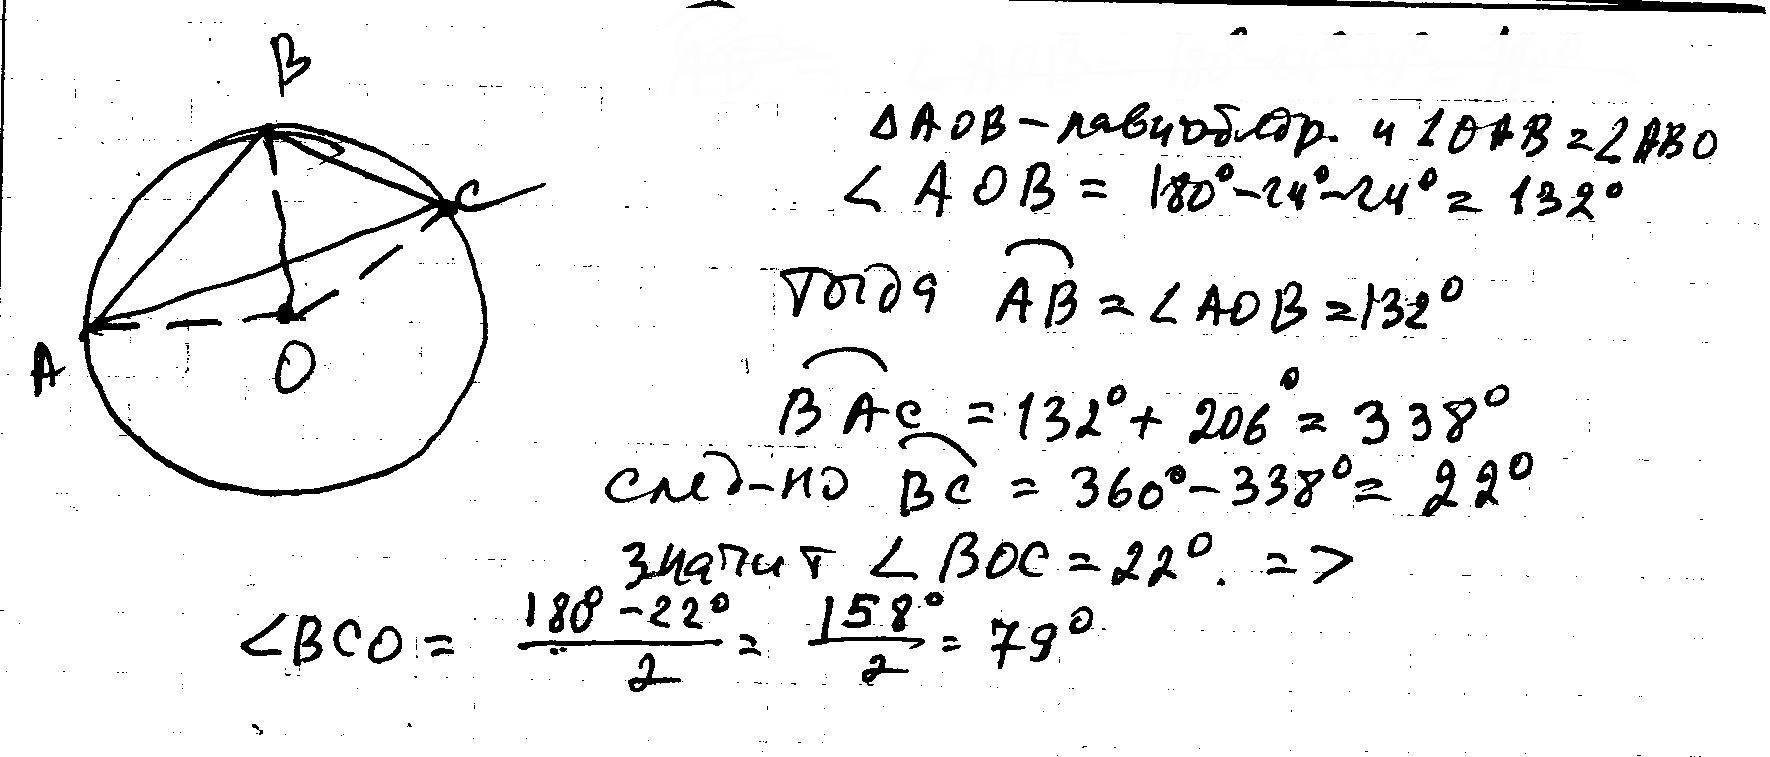 B
C
A
O
ΔAOB – равнобедр. и ∠OAB = ∠ABO
∠AOB = 180° – 24° – 24° = 132°
Тогда AB = ∠AOB = 132°
BAC = 132° + 206° = 338°
след-но BC = 360° – 338° = 22°
значит ∠BOC = 22°. =>
∠BCO = (180° – 22°)/2 = 158°/2 = 79°